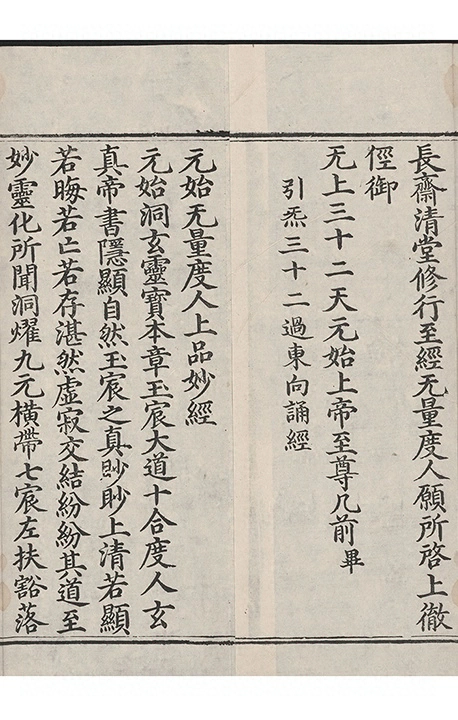 長齋清堂修行至經无量度人願所啓上徹
徑御
无上三十二天元始上帝至尊几前畢
引炁三十二過東向誦經
元始无量度人上品妙經
元始洞玄靈寶本章玉宸大道十合度人玄
真帝書隱顯自然玉宸之真眇眇上清若顯
若晦若亡若存湛然虚寂交結紛紛其道至
妙靈化所聞洞燿九元橫帶七宸左扶豁落